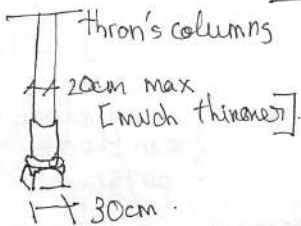 thron's columns
20cm max
[much thinner].
30cm.